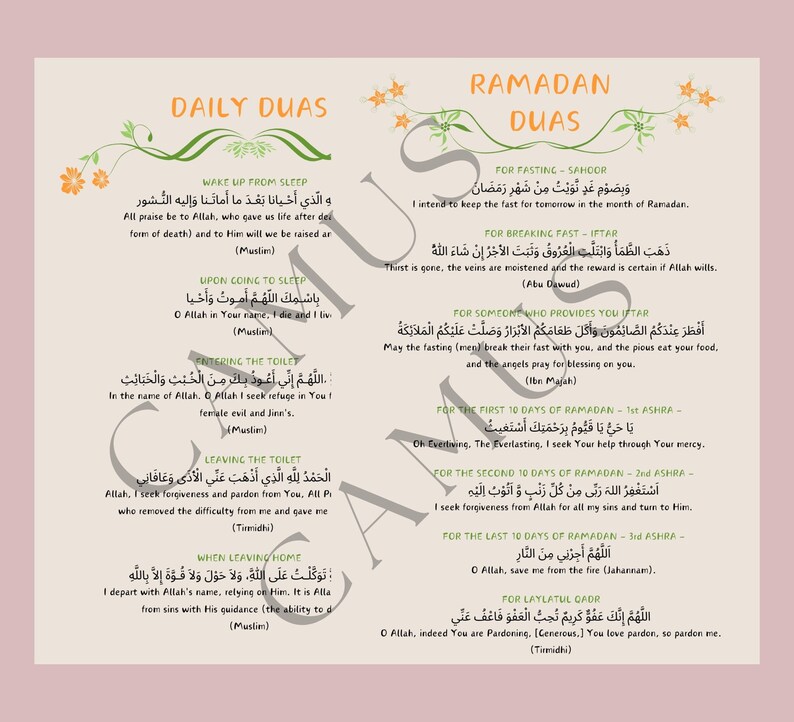 DAILY DUAS
WAKE UP FROM SLEEP
ـهِ الّذي أَحْـيانا بَعْـدَ ما أَماتَـنا وَإليه النُّـشور
All praise be to Allah, who gave us life after dea
form of death) and to Him will we be raised an
(Muslim)
UPON GOING TO SLEEP
بِاسْـمِكَ اللّهُـمَّ أَمـوتُ وَأَحْـيا
O Allah in Your name, I die and I live
(Muslim)
ENTERING THE TOILET
،اللَّهُـمَّ إِنِّي أَعُـوذُ بِـكَ مِـنَ الْخُـبْثِ وَالْخَبَائِثِ
In the name of Allah. O Allah I seek refuge in You f
female evil and Jinn's.
(Muslim)
LEAVING THE TOILET
الْحَمْدُ لِلَّهِ الَّذِي أَذْهَبَ عَنِّي الْأَذَى وَعَافَانِي
Allah, I seek forgiveness and pardon from You, All P
who removed the difficulty from me and gave me
(Tirmidhi)
WHEN LEAVING HOME
تَوَكَّلْـتُ عَلَى اللَّهِ، وَلاَ حَوْلَ وَلاَ قُـوَّةَ إِلاَّ بِاللَّهِ
I depart with Allah's name, relying on Him. It is Alla
from sins with His guidance (the ability to d
(Muslim)
RAMADAN
DUAS
FOR FASTING – SAHOOR
وَبِصَوْمِ غَدٍ نَّوَيْتُ مِنْ شَهْرِ رَمَضَانَ
I intend to keep the fast for tomorrow in the month of Ramadan.
FOR BREAKING FAST – IFTAR
ذَهَبَ الظَّمَأُ وَابْتَلَّتِ الْعُرُوقُ وَثَبَتَ الأَجْرُ إِنْ شَاءَ اللَّهُ
Thirst is gone, the veins are moistened and the reward is certain if Allah wills.
(Abu Dawud)
FOR SOMEONE WHO PROVIDES YOU IFTAR
أَفْطَرَ عِنْدَكُمُ الصَّائِمُونَ وَأَكَلَ طَعَامَكُمُ الأَبْرَارُ وَصَلَّتْ عَلَيْكُمُ الْمَلاَئِكَةُ
May the fasting (men) break their fast with you, and the pious eat your food,
and the angels pray for blessing on you.
(Ibn Majah)
FOR THE FIRST 10 DAYS OF RAMADAN – 1st ASHRA –
يَا حَيُّ يَا قَيُّومُ بِرَحْمَتِكَ أَسْتَغيثُ
Oh Everliving, The Everlasting, I seek Your help through Your mercy.
FOR THE SECOND 10 DAYS OF RAMADAN – 2nd ASHRA –
اَسْتَغْفِرُ اللهَ رَبِّى مِنْ كُلِّ زَنْبٍ وَّ اَتُوْبُ اِلَيْهِ
I seek forgiveness from Allah for all my sins and turn to Him.
FOR THE LAST 10 DAYS OF RAMADAN – 3rd ASHRA –
اَللَّهُمَّ أَجِرْنِي مِنَ النَّارِ
O Allah, save me from the fire (Jahannam).
FOR LAYLATUL QADR
اللَّهُمَّ إِنَّكَ عَفُوٌّ كَرِيمٌ تُحِبُّ الْعَفْوَ فَاعْفُ عَنِّي
O Allah, indeed You are Pardoning, [Generous,] You love pardon, so pardon me.
(Tirmidhi)
CAMUS
CAMUS